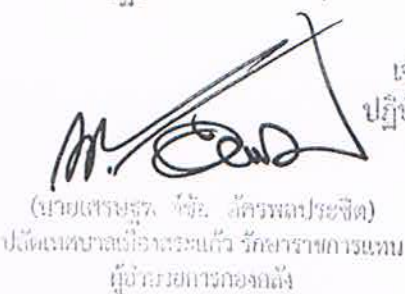 เจ
ปฏิบ
(นายเศรษฐ ฉัตรพลประชิต)
ปลัดเทศบาลเมืองสระแก้ว รักษาราชการแทน
ผู้อำนวยการกองคลัง